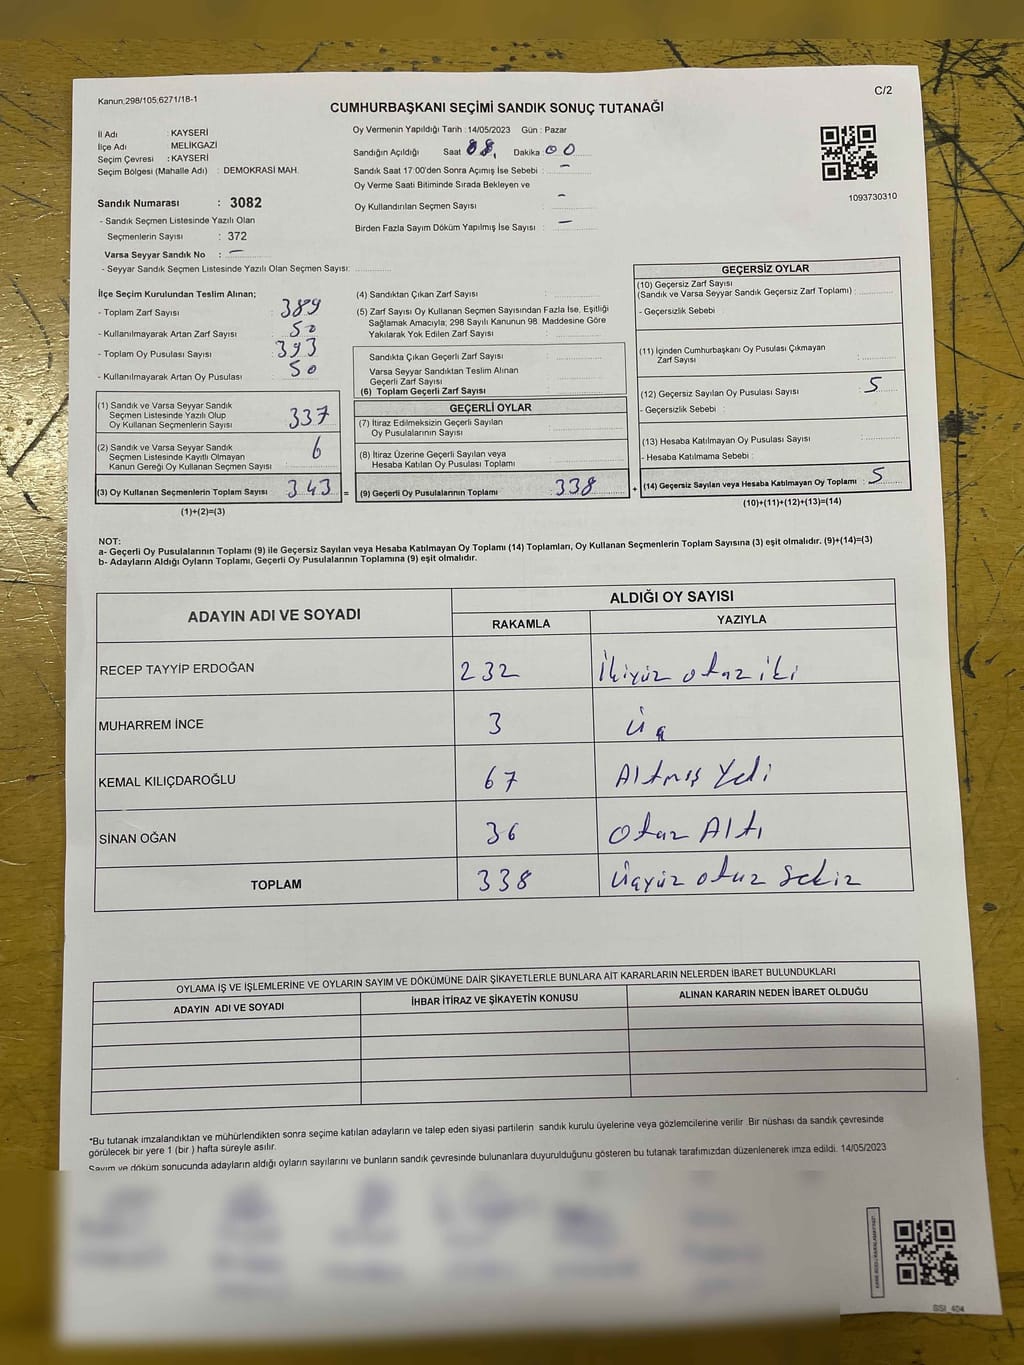 Kanun;298/105;6271/18-1
C/2
CUMHURBAŞKANI SEÇİMİ SANDIK SONUÇ TUTANAĞI
İl Adı : KAYSERİ
İlçe Adı MELİKGAZİ
Seçim Çevresi : KAYSERİ
Seçim Bölgesi (Mahalle Adı) : DEMOKRASİ MAH.
Oy Vermenin Yapıldığı Tarih : 14/05/2023 Gün : Pazar
Sandığın Açıldığı Saat 08, Dakika : 00
Sandık Saat 17:00'den Sonra Açımış İse Sebebi : –
Oy Verme Saati Bitiminde Sırada Bekleyen ve
Oy Kullandırılan Seçmen Sayısı : –
Birden Fazla Sayım Döküm Yapılmış İse Sayısı : –
1093730310
Sandık Numarası : 3082
- Sandık Seçmen Listesinde Yazılı Olan
Seçmenlerin Sayısı : 372
Varsa Seyyar Sandık No : –
- Seyyar Sandık Seçmen Listesinde Yazılı Olan Seçmen Sayısı: ............
İlçe Seçim Kurulundan Teslim Alınan;
- Toplam Zarf Sayısı : 389
- Kullanılmayarak Artan Zarf Sayısı : 50
- Toplam Oy Pusulası Sayısı : 393
- Kullanılmayarak Artan Oy Pusulası : 50
(1) Sandık ve Varsa Seyyar Sandık
Seçmen Listesinde Yazılı Olup
Oy Kullanan Seçmenlerin Sayısı 337
(2) Sandık ve Varsa Seyyar Sandık
Seçmen Listesinde Kayıtlı Olmayan
Kanun Gereği Oy Kullanan Seçmen Sayısı 6
(3) Oy Kullanan Seçmenlerin Toplam Sayısı 343 =
(1)+(2)=(3)
(4) Sandıktan Çıkan Zarf Sayısı :
(5) Zarf Sayısı Oy Kullanan Seçmen Sayısından Fazla İse, Eşitliği
Sağlamak Amacıyla; 298 Sayılı Kanunun 98. Maddesine Göre
Yakılarak Yok Edilen Zarf Sayısı :
Sandıkta Çıkan Geçerli Zarf Sayısı :
Varsa Seyyar Sandıktan Teslim Alınan
Geçerli Zarf Sayısı :
(6) Toplam Geçerli Zarf Sayısı :
GEÇERLİ OYLAR
(7) İtiraz Edilmeksizin Geçerli Sayılan
Oy Pusulalarının Sayısı :
(8) İtiraz Üzerine Geçerli Sayılan veya
Hesaba Katılan Oy Pusulası Toplamı :
(9) Geçerli Oy Pusulalarının Toplamı : 338 +
GEÇERSİZ OYLAR
(10) Geçersiz Zarf Sayısı
(Sandık ve Varsa Seyyar Sandık Geçersiz Zarf Toplamı) :
- Geçersizlik Sebebi
(11) İçinden Cumhurbaşkanı Oy Pusulası Çıkmayan
Zarf Sayısı :
(12) Geçersiz Sayılan Oy Pusulası Sayısı : 5
- Geçersizlik Sebebi :
(13) Hesaba Katılmayan Oy Pusulası Sayısı :
- Hesaba Katılmama Sebebi :
(14) Geçersiz Sayılan veya Hesaba Katılmayan Oy Toplamı : 5
(10)+(11)+(12)+(13)=(14)
NOT:
a- Geçerli Oy Pusulalarının Toplamı (9) ile Geçersiz Sayılan veya Hesaba Katılmayan Oy Toplamı (14) Toplamları, Oy Kullanan Seçmenlerin Toplam Sayısına (3) eşit olmalıdır. (9)+(14)=(3)
b- Adayların Aldığı Oyların Toplamı, Geçerli Oy Pusulalarının Toplamına (9) eşit olmalıdır.
ADAYIN ADI VE SOYADI ALDIĞI OY SAYISI
RAKAMLA YAZIYLA
RECEP TAYYİP ERDOĞAN 232 İkiyüz otuz iki
MUHARREM İNCE 3 Üç
KEMAL KILIÇDAROĞLU 67 Altmış Yedi
SİNAN OĞAN 36 Otuz Altı
TOPLAM 338 Üçyüz otuz Sekiz
OYLAMA İŞ VE İŞLEMLERİNE VE OYLARIN SAYIM VE DÖKÜMÜNE DAİR ŞİKAYETLERLE BUNLARA AİT KARARLARIN NELERDEN İBARET BULUNDUKLARI
ADAYIN ADI VE SOYADI İHBAR İTİRAZ VE ŞİKAYETİN KONUSU ALINAN KARARIN NEDEN İBARET OLDUĞU
*Bu tutanak imzalandıktan ve mühürlendikten sonra seçime katılan adayların ve talep eden siyasi partilerin sandık kurulu üyelerine veya gözlemcilerine verilir. Bir nüshası da sandık çevresinde
görülecek bir yere 1 (bir ) hafta süreyle asılır.
Sayım ve döküm sonucunda adayların aldığı oyların sayılarını ve bunların sandık çevresinde bulunanlara duyurulduğunu gösteren bu tutanak tarafımızdan düzenlenerek imza edildi. 14/05/2023
SSI_404